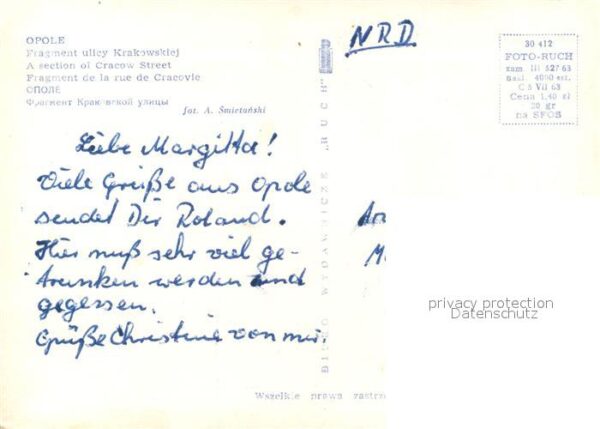 OPOLE
Fragment ulicy Krakowskiej
A section of Cracow Street
Fragment de la rue de Cracovie
ОПОЛЕ
Фрагмент Краковской улицы
fot. A. Śmietański
Liebe Margitta!
Viele Grüße aus Opole
sendet Dir Roland.
Hier muß sehr viel ge-
trunken werden und
gegessen.
Grüße Christine von mir.
Wszelkie prawa zastrz
BIURO WYDAWNICZE „RUCH"
NRD
30 412
FOTO-RUCH
zam. III 527/63
nakł. 4000 egz.
C 5 VII 63
Cena 1,40 zł
20 gr
na SFOS
privacy protection
Datenschutz